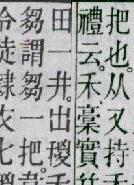 把也。从又持
禮云。禾稾實
田一井。出稯
芻謂芻一把
令徒隸衣七